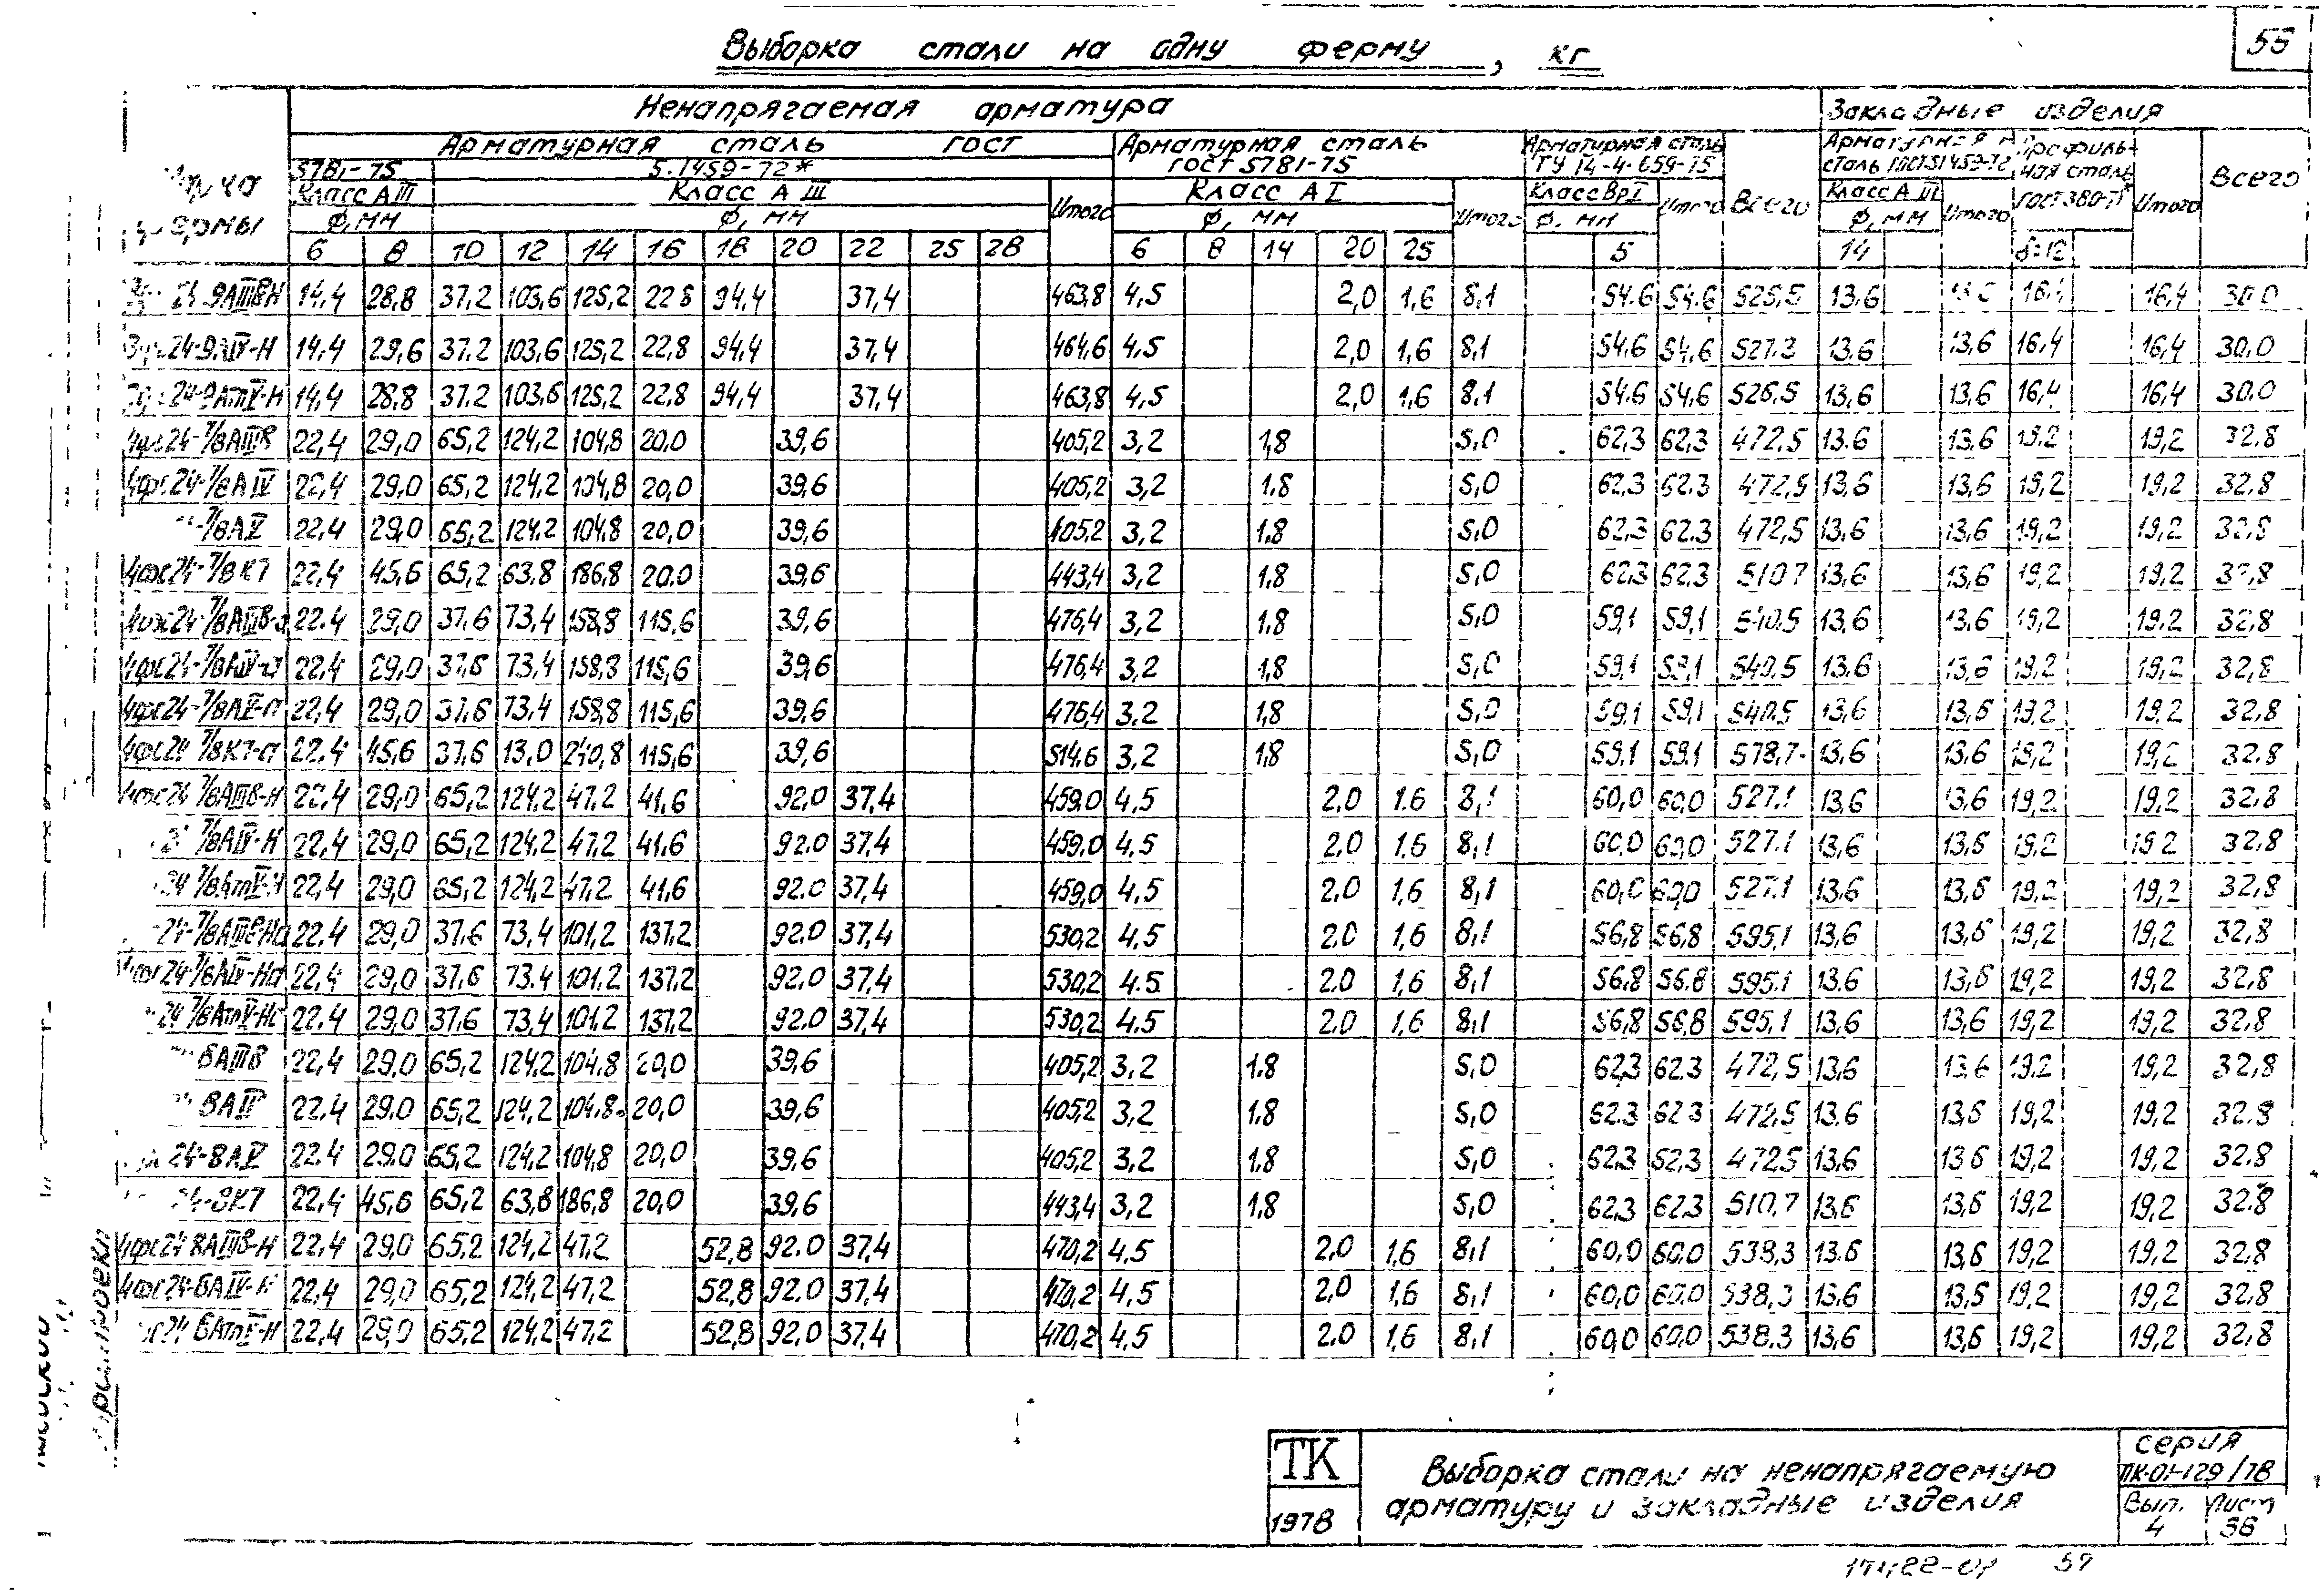 55
Выборка стали на одну ферму, кг
Ненапрягаемая арматура
Закладные изделия
Арматурная сталь ГОСТ
Арматурная сталь
ГОСТ 5781-75
Арматурная сталь
ТУ 14-4-659-75
Арматурная
сталь ГОСТ 51459-72
Профиль-
ная сталь
ГОСТ 380-71
Всего
5781-75 5.1459-72*
Класс АIII Класс А III Итого Класс А I Итого Класс ВрI Итого Всего Класс А III Итого Итого
ф, мм ф, мм ф, мм ф, мм ф, мм
6 8 10 12 14 16 18 20 22 25 28 6 8 14 20 25 5 14 δ=12
24-9АIIIВН 14,4 28,8 37,2 103,6 125,2 22,8 94,4 37,4 463,8 4,5 2,0 1,6 8,1 54,6 54,6 526,5 13,6 16,4 16,4 30,0
24-9АIV-Н 14,4 29,6 37,2 103,6 125,2 22,8 94,4 37,4 464,6 4,5 2,0 1,6 8,1 54,6 54,6 527,3 13,6 13,6 16,4 16,4 30,0
24-9АтV-Н 14,4 28,8 37,2 103,6 125,2 22,8 94,4 37,4 463,8 4,5 2,0 1,6 8,1 54,6 54,6 526,5 13,6 13,6 16,4 16,4 30,0
4фс24-7/8АIIIВ 22,4 29,0 65,2 124,2 104,8 20,0 39,6 405,2 3,2 1,8 5,0 62,3 62,3 472,5 13,6 13,6 19,2 19,2 32,8
4фс24-7/8АIV 22,4 29,0 65,2 124,2 104,8 20,0 39,6 405,2 3,2 1,8 5,0 62,3 62,3 472,5 13,6 13,6 19,2 19,2 32,8
-7/8АV 22,4 29,0 65,2 124,2 104,8 20,0 39,6 405,2 3,2 1,8 5,0 62,3 62,3 472,5 13,6 13,6 19,2 19,2 32,8
4фс24-7/8К7 22,4 45,6 65,2 63,8 186,8 20,0 39,6 443,4 3,2 1,8 5,0 62,3 62,3 510,7 13,6 13,6 19,2 19,2 32,8
4фс24-7/8АIIIВ-а 22,4 29,0 37,6 73,4 158,8 115,6 39,6 476,4 3,2 1,8 5,0 59,1 59,1 540,5 13,6 13,6 19,2 19,2 32,8
4фс24-7/8АIV-а 22,4 29,0 37,6 73,4 158,8 115,6 39,6 476,4 3,2 1,8 5,0 59,1 59,1 540,5 13,6 13,6 19,2 19,2 32,8
4фс24-7/8АV-а 22,4 29,0 37,6 73,4 158,8 115,6 39,6 476,4 3,2 1,8 5,0 59,1 59,1 540,5 13,6 13,6 19,2 19,2 32,8
4фс24 7/8К7-а 22,4 45,6 37,6 13,0 240,8 115,6 39,6 514,6 3,2 1,8 5,0 59,1 59,1 578,7 13,6 13,6 19,2 19,2 32,8
4фс24 7/8АIIIВ-Н 22,4 29,0 65,2 124,2 47,2 41,6 92,0 37,4 459,0 4,5 2,0 1,6 8,1 60,0 60,0 527,1 13,6 13,6 19,2 19,2 32,8
7/8АIV-Н 22,4 29,0 65,2 124,2 47,2 41,6 92,0 37,4 459,0 4,5 2,0 1,6 8,1 60,0 60,0 527,1 13,6 13,6 19,2 19,2 32,8
24 7/8АтV-Н 22,4 29,0 65,2 124,2 47,2 41,6 92,0 37,4 459,0 4,5 2,0 1,6 8,1 60,0 60,0 527,1 13,6 13,6 19,2 19,2 32,8
24-7/8АIIIВ-На 22,4 29,0 37,6 73,4 101,2 137,2 92,0 37,4 530,2 4,5 2,0 1,6 8,1 56,8 56,8 595,1 13,6 13,6 19,2 19,2 32,8
4фс24-7/8АIV-На 22,4 29,0 37,6 73,4 101,2 137,2 92,0 37,4 530,2 4,5 2,0 1,6 8,1 56,8 56,8 595,1 13,6 13,6 19,2 19,2 32,8
24 7/8АтV-На 22,4 29,0 37,6 73,4 101,2 137,2 92,0 37,4 530,2 4,5 2,0 1,6 8,1 56,8 56,8 595,1 13,6 13,6 19,2 19,2 32,8
8АIIIВ 22,4 29,0 65,2 124,2 104,8 20,0 39,6 405,2 3,2 1,8 5,0 62,3 62,3 472,5 13,6 13,6 19,2 19,2 32,8
8АIV 22,4 29,0 65,2 124,2 104,8 20,0 39,6 405,2 3,2 1,8 5,0 62,3 62,3 472,5 13,6 13,6 19,2 19,2 32,8
24-8АV 22,4 29,0 65,2 124,2 104,8 20,0 39,6 405,2 3,2 1,8 5,0 62,3 62,3 472,5 13,6 13,6 19,2 19,2 32,8
24-8К7 22,4 45,6 65,2 63,8 186,8 20,0 39,6 443,4 3,2 1,8 5,0 62,3 62,3 510,7 13,6 13,6 19,2 19,2 32,8
4фс24 8АIIIВ-Н 22,4 29,0 65,2 124,2 47,2 52,8 92,0 37,4 470,2 4,5 2,0 1,6 8,1 60,0 60,0 538,3 13,6 13,6 19,2 19,2 32,8
4фс24-8АIV-Н 22,4 29,0 65,2 124,2 47,2 52,8 92,0 37,4 470,2 4,5 2,0 1,6 8,1 60,0 60,0 538,3 13,6 13,6 19,2 19,2 32,8
24 8АтV-Н 22,4 29,0 65,2 124,2 47,2 52,8 92,0 37,4 470,2 4,5 2,0 1,6 8,1 60,0 60,0 538,3 13,6 13,6 19,2 19,2 32,8
ТК
1978
Выборка стали на ненапрягаемую
арматуру и закладные изделия
серия
ПК-01-129/78
Вып. Лист
4 38
57